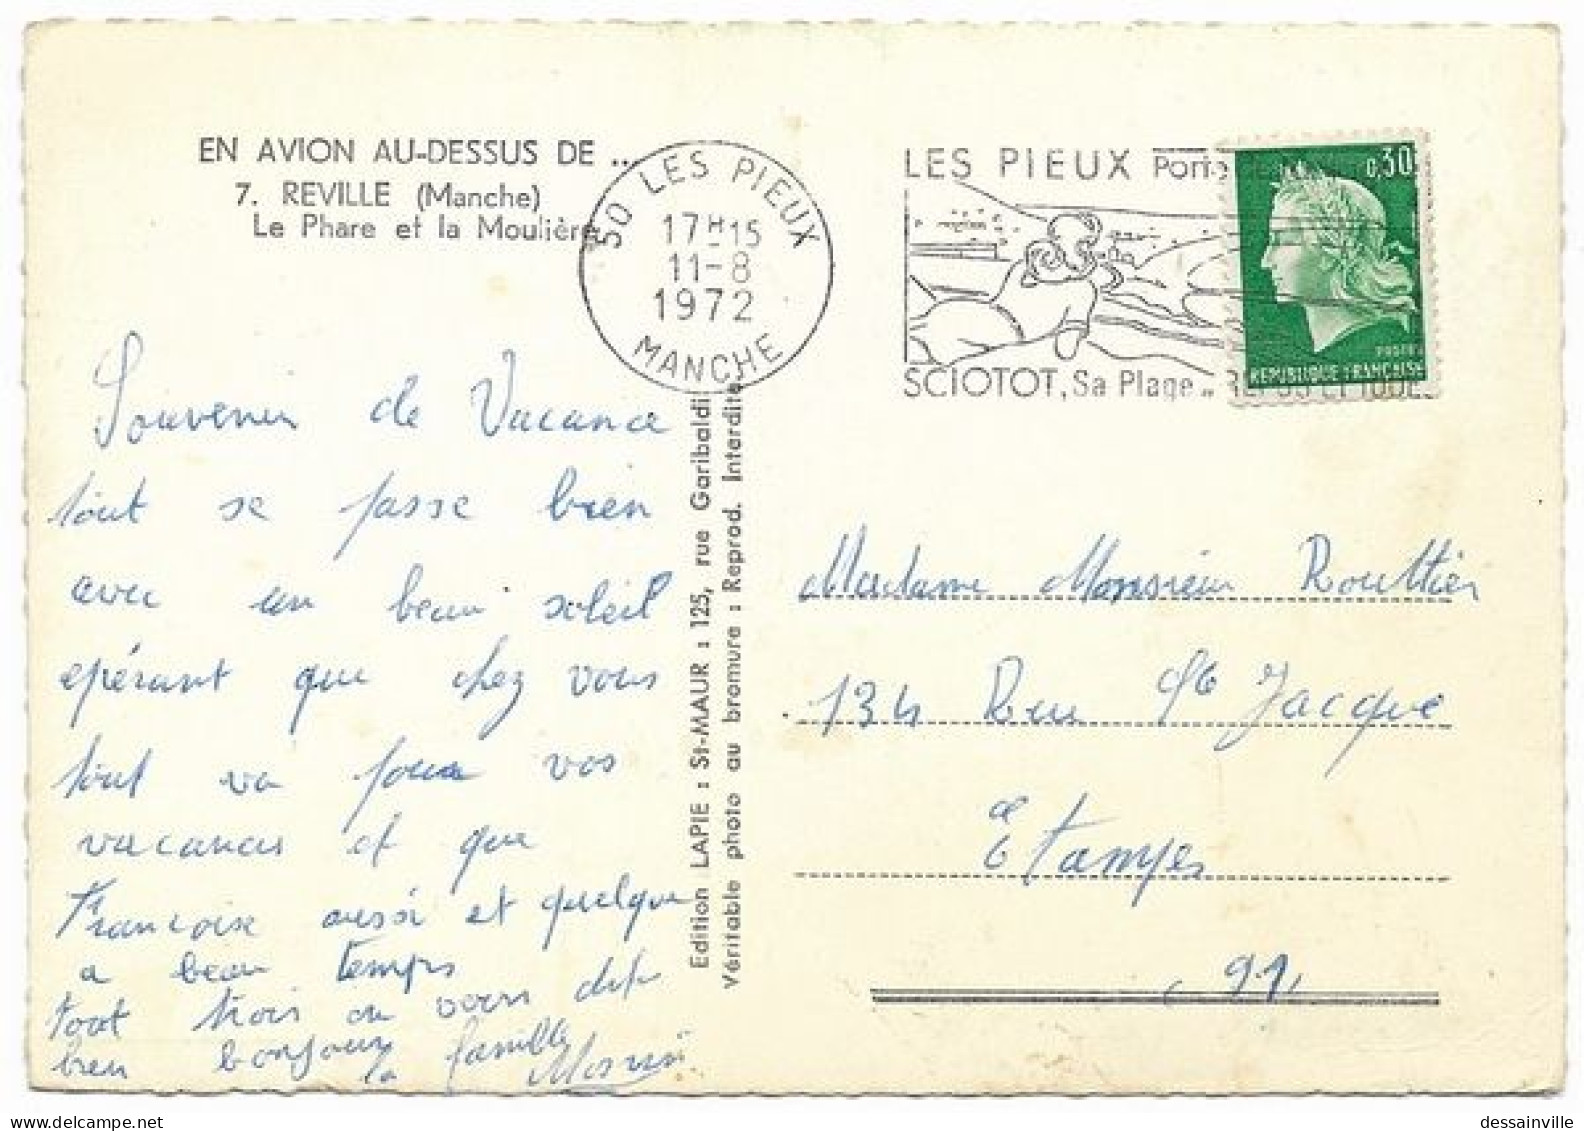 EN AVION AU-DESSUS DE ...
7. REVILLE (Manche)
Le Phare et la Moulière
50 LES PIEUX
17H15
11-8
1972
MANCHE
LES PIEUX Porte
SCIOTOT, Sa Plage
0,30
POSTES
REPUBLIQUE FRANÇAISE
Souvenir de Vacance
tout se passe bien
avec un beau soleil
epérant que chez vous
tout va pour vos
vacances et que
Francoise aussi et quelque
a beau temps
tout trois on vous dit
bien bonjour
la famille
Edition LAPIE : St-MAUR : 125, rue Garibaldi
Véritable photo au bromure : Reprod. Interdite
Madame Monsieur Routtier
134 Rue St Jacque
Etampes
91
dessainville